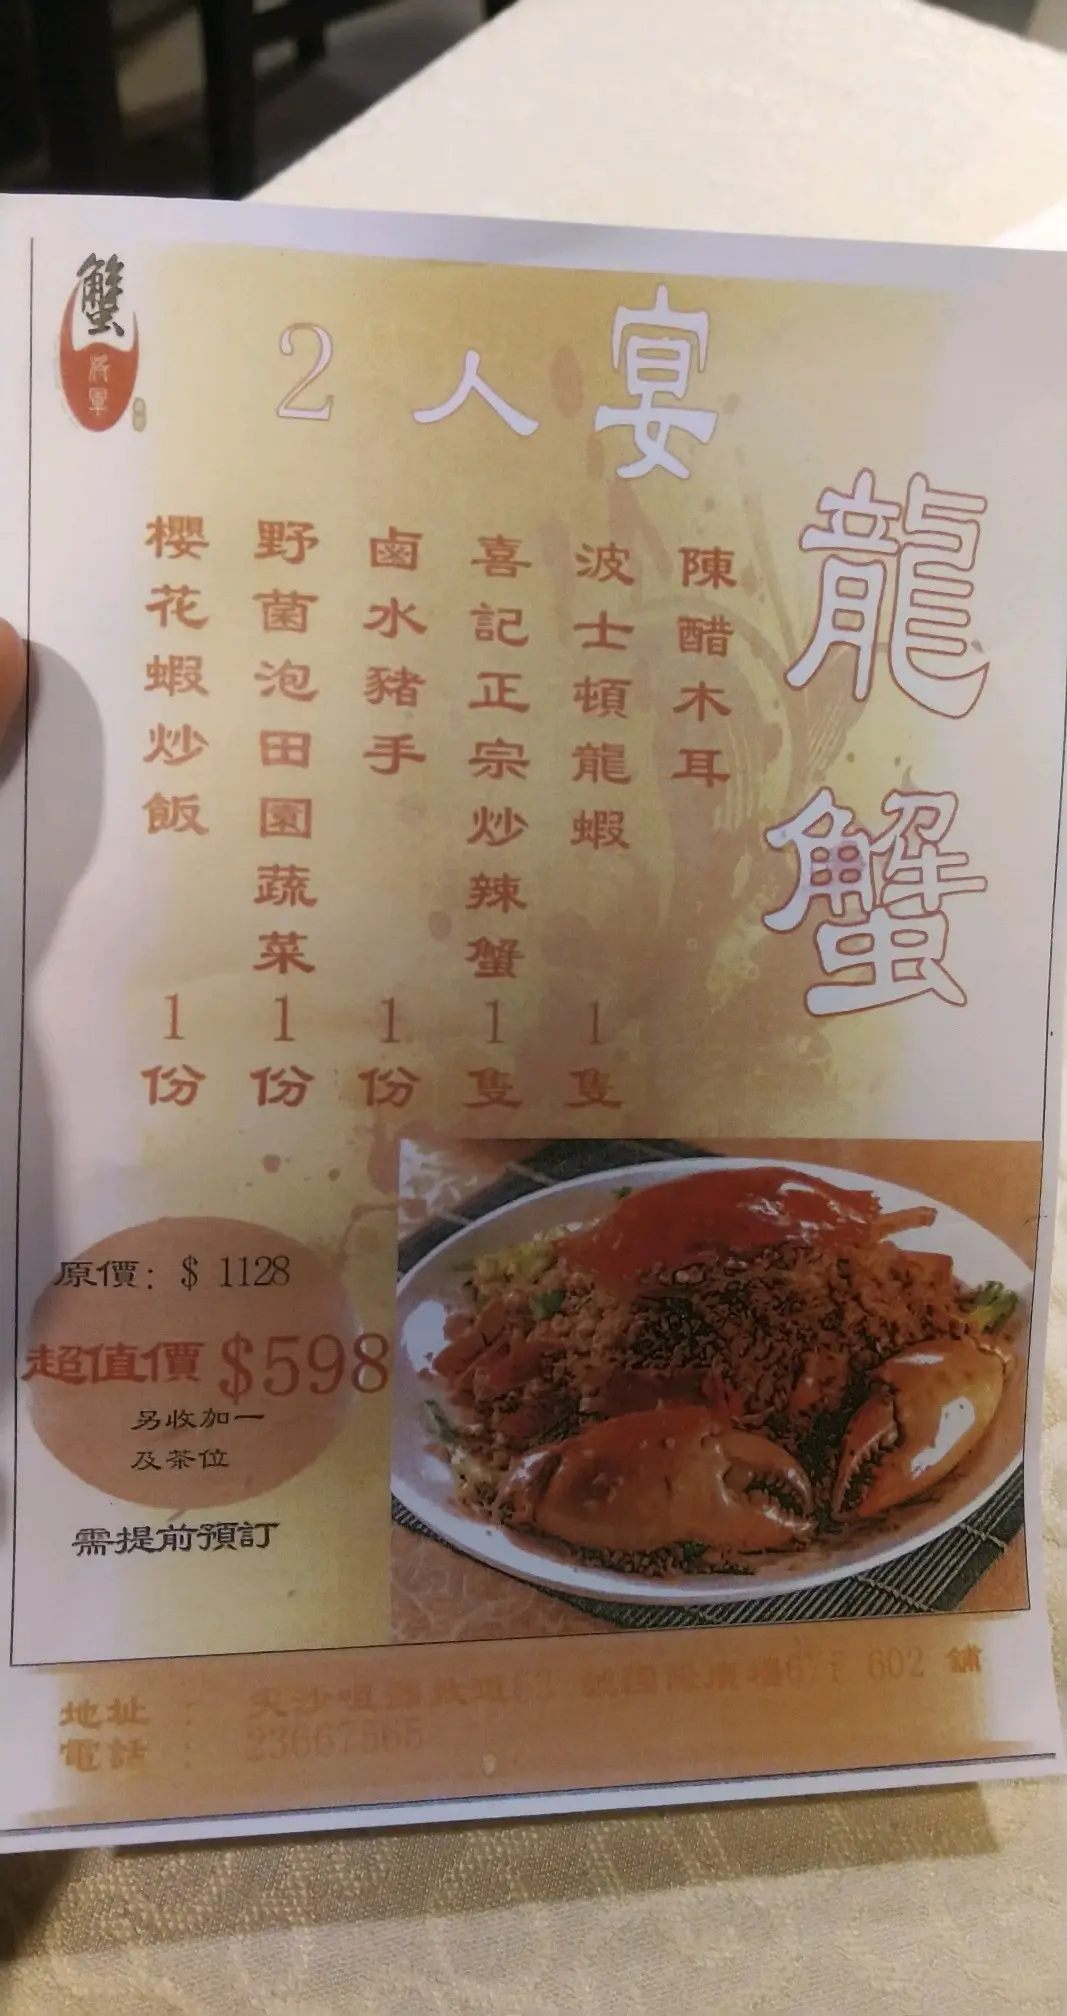 蟹
將軍
2人宴
龍蟹
陳醋木耳
波士頓龍蝦1隻
喜記正宗炒辣蟹1隻
鹵水豬手1份
野菌泡田園蔬菜1份
櫻花蝦炒飯1份
原價：$ 1128
超值價 $598
另收加一
及茶位
需提前預訂
地址 ： 尖沙咀彌敦道63 號國際廣場6/f 602 舖
電話 ： 23667565